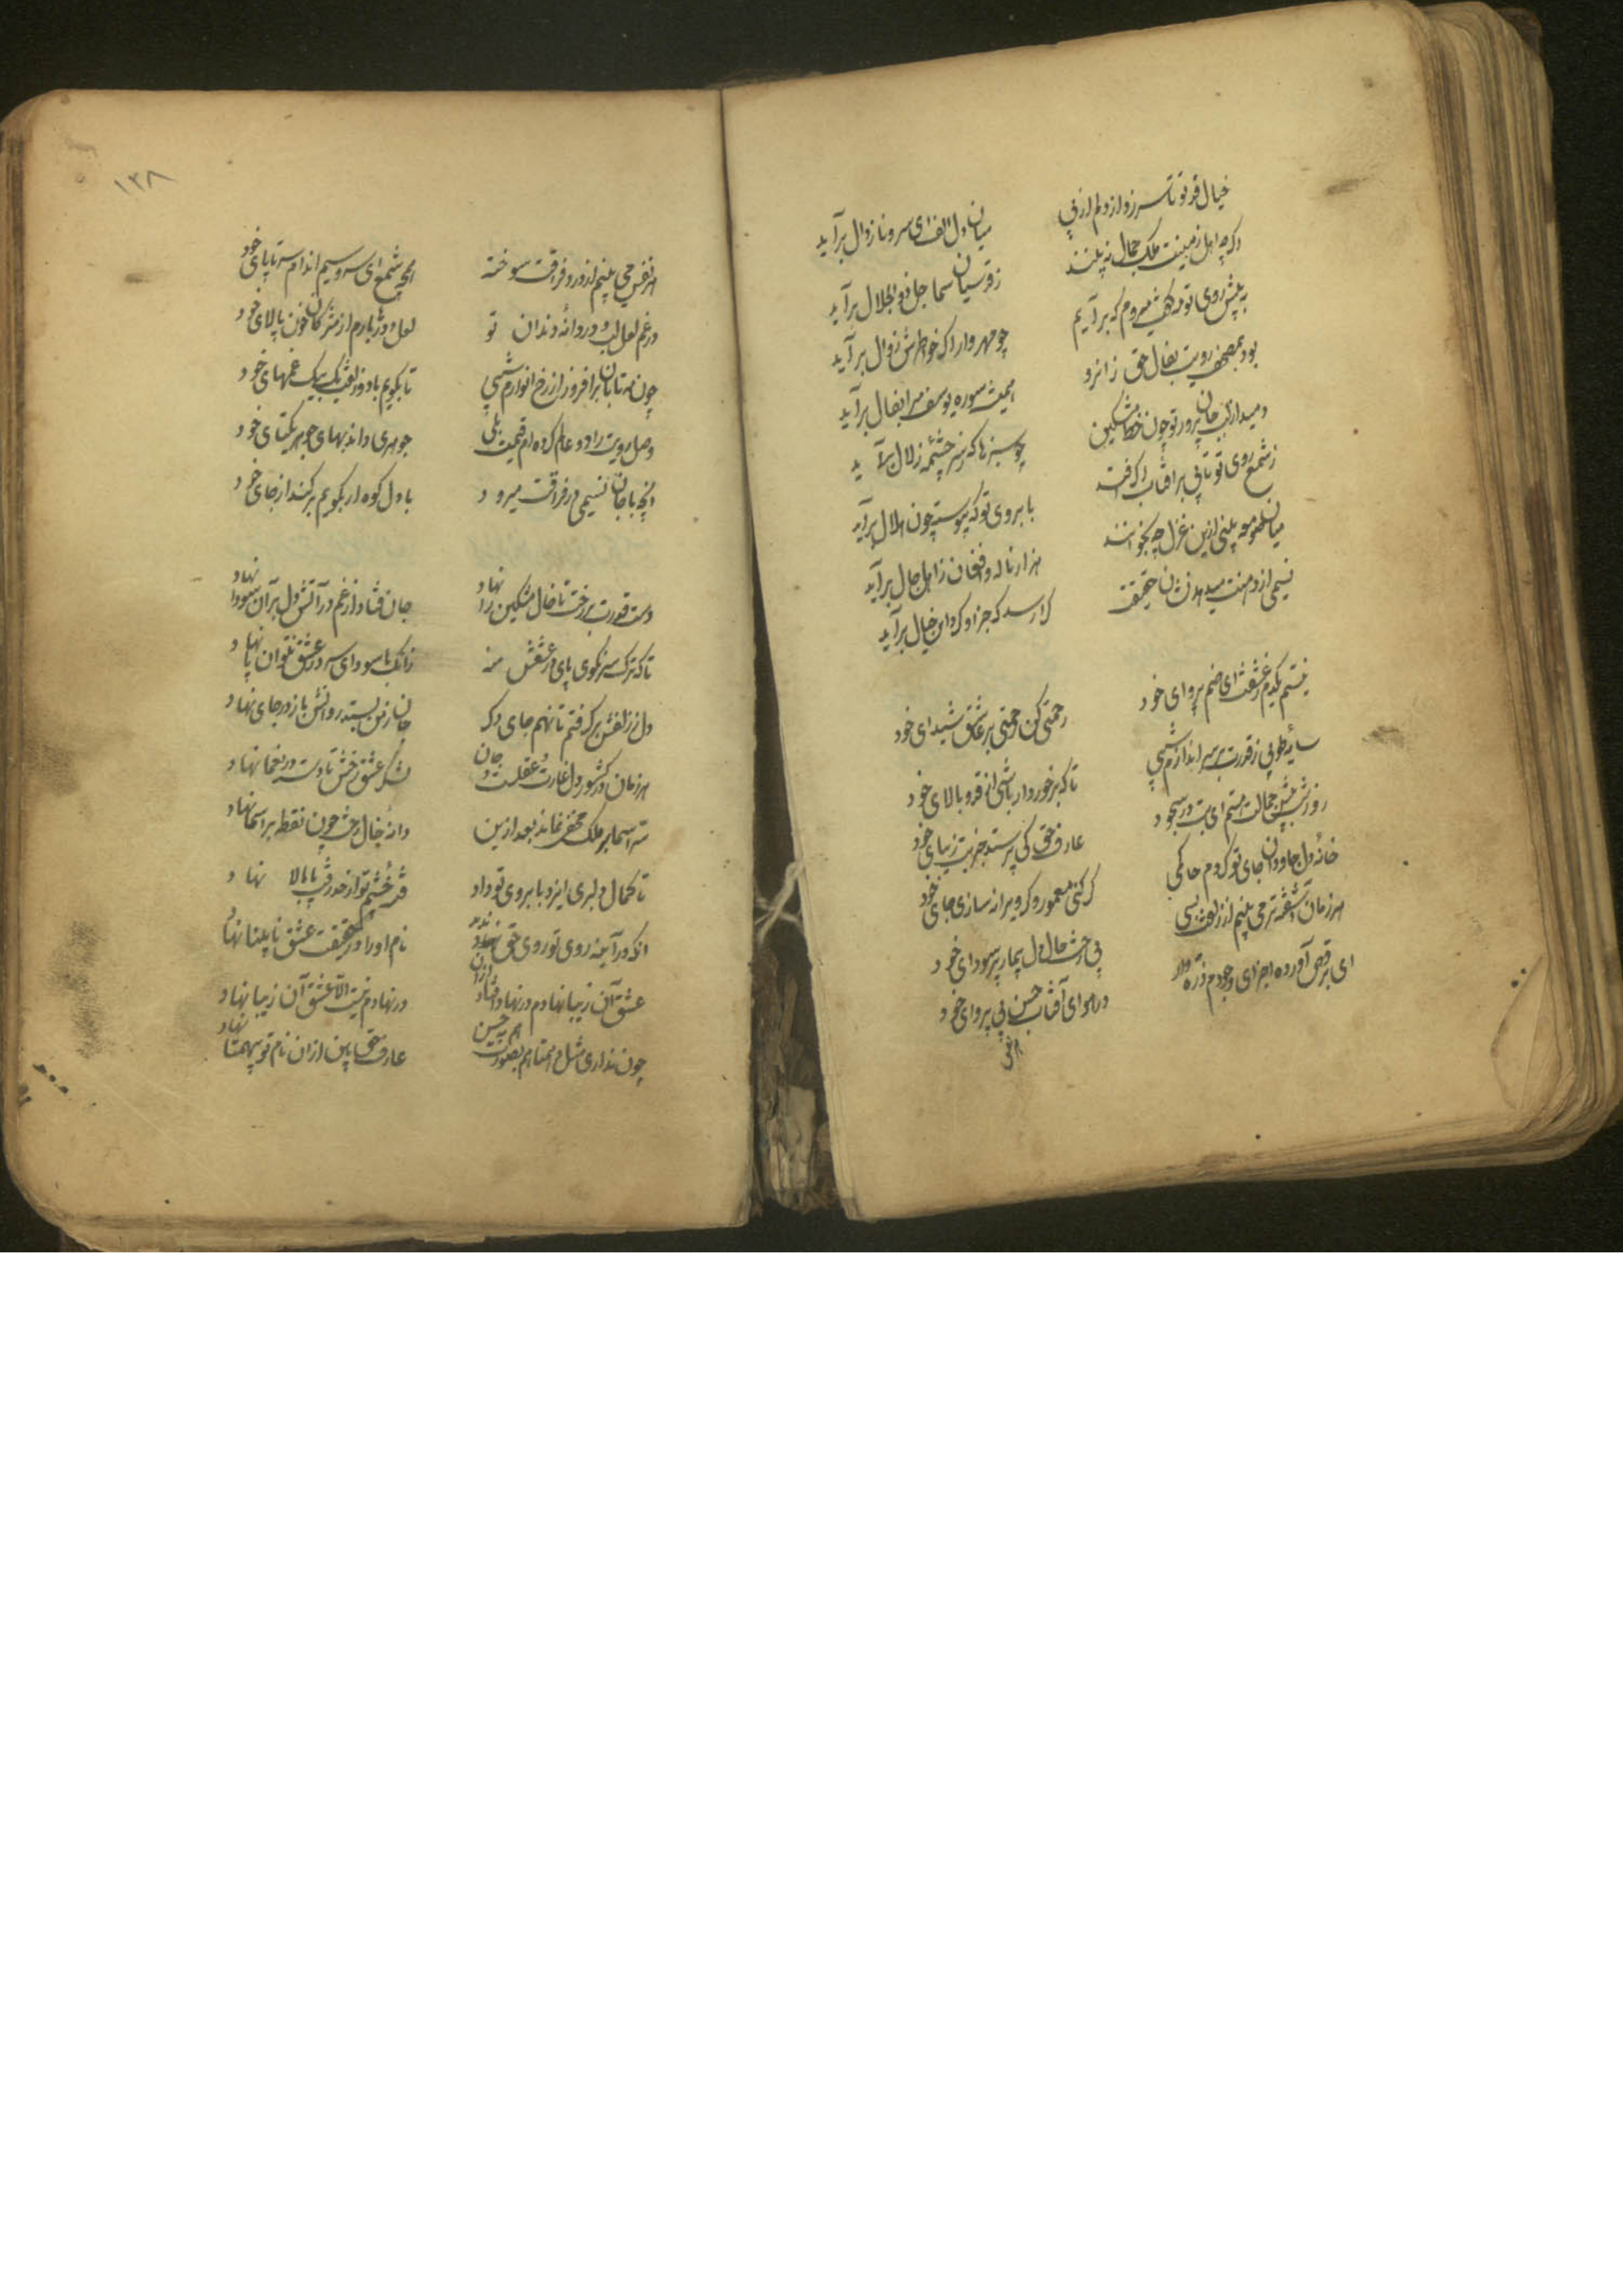 خیال قد تو تا سر زد از دلم از پی
میان دل الف ای سرو ناز وال برآید
اگر چه اهل زمینت ملک جمال نه بینند
ز قدسیان سما جل ذو الجلال برآید
به پیش روی تو مه کی میروم که برآیم
چو مهر وار اگر خواطرش زوال برآید
بود بمصحف رویت بفال حق ز انرو
همیشه سوره یوسف مرا بفال برآید
دمید از لب جان پرور تو چون خط مشکین
چو سبزها که ز سر چشمه زلال برآید
ز شمع روی تو تابی بر آفتاب اگر افتد
بابروی تو که پیوسته چون هلال برآید
میان صومعه بینی ازین غزل چه بخوانند
هزار ناله و افغان ز اهل حال برآید
نسیمی از دهنت میدهد نشان حقیقت
کرا رسد که جز او کرد این خیال برآید
نیستم یکدم ز عشقت ای صنم پروای خود
رحمتی کن رحمتی بر عاشق شیدای خود
سایه طوبی ز قدت بر سر اندازم شبی
تا که برخوردار باشی از قد و بالای خود
روز و شب پیش جمالت هستم ای بت در سجود
عارف حق کی پرستد جز بت زیبای خود
خانه دل جاودان جای تو کردم حاکمی
گر کنی معمور و گر ویرانه سازی جای خود
هر زمان آشفته تر می بینم از زلفت بسی
بی رخت حال دل بیمار پر سودای خود
ای برقص آورده اجزای وجودم ذره وار
در هوای آفتاب حسن بی پروای خود
هر نفس
۱۳۸
هر نفس می بینم از درد فراقت سوخته
همچو شمع ای سرو سیم اندام سر تا پای خود
در غم لعل لب و دردانه دندان تو
لعل و در بارم از مژگان خون پالای خود
چون مه تابان برافروز از رخ انوارم شبی
تا بگویم با دو زلفت یک بیک غمهای خود
وصل رویت را دو عالم کرده ام قیمت بلی
جوهری داند بهای جوهر یکتای خود
آنچه با جان نسیمی در فراقت میرود
با دل کوه ار بگویم بر کند از جای خود
دست قدرت بر رخت تا خال مشکین را نهاد
جان فتاد از غم در آتش دل بر آن سودا نهاد
تا که ترک سر نگوی پای در عشقش منه
زانک با سودای سر در عشق نتوان پا نهاد
دل ز زلفش برگرفتم تا نهم جای دگر
جان ز من بستد روانش باز در جای نهاد
هر زمان در کشور دل غارت عقلست و جان
لشکر عشق رخش تا دست در یغما نهاد
سر اسما بر ملک مخفی نماند بعد ازین
دانه خال رخت چون نقطه بر اسما نهاد
تا کمال دلبری ایزد بابروی تو داد
انکه در آینه روی تو روی حق ندید
نام او را در حقیقت عشق نابینا نهاد
عشق آن زیبا نهادم در نهاد افتاد از آن
در نهادم نیست الا عشق آن زیبا نهاد
چون نداری مثل و همتا هم بصورت هم بحسن
عارف حق بین از آن نام تو بیهمتا نهاد